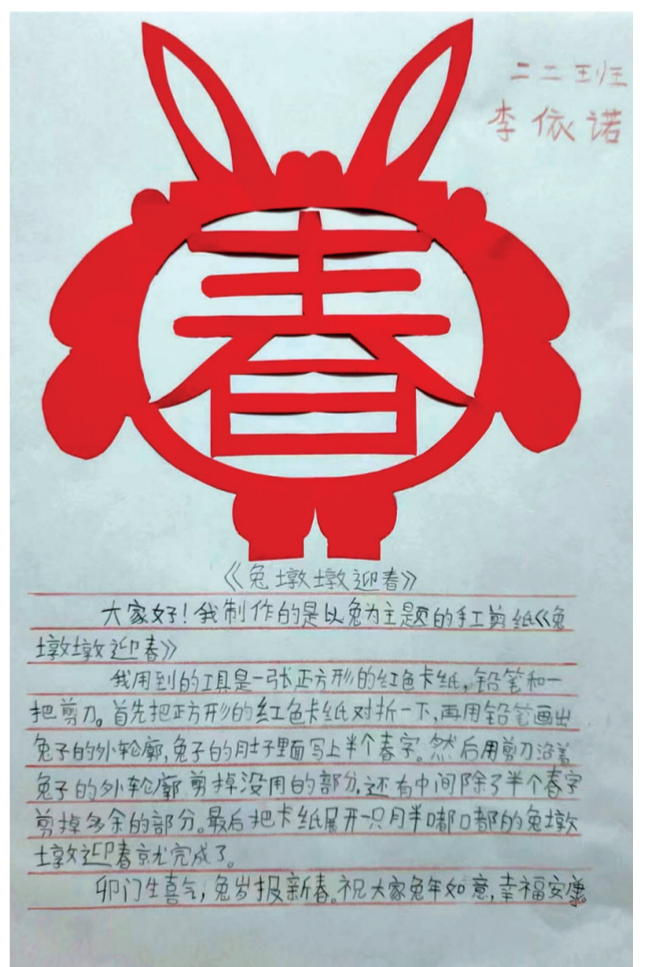 二二班
李依诺
春
《兔墩墩迎春》
大家好!我制作的是以兔为主题的手工剪纸《兔
墩墩迎春》
我用到的工具是一张正方形的红色卡纸,铅笔和一
把剪刀。首先把正方形的红色卡纸对折一下,再用铅笔画出
兔子的外轮廓,兔子的肚子里面写上半个春字。然后用剪刀沿着
兔子的外轮廓剪掉没用的部分,还有中间除了半个春字
剪掉多余的部分。最后把卡纸展开一只胖嘟嘟的兔墩
墩迎春就完成了。
卯门生喜气,兔岁报新春。祝大家兔年如意,幸福安康。